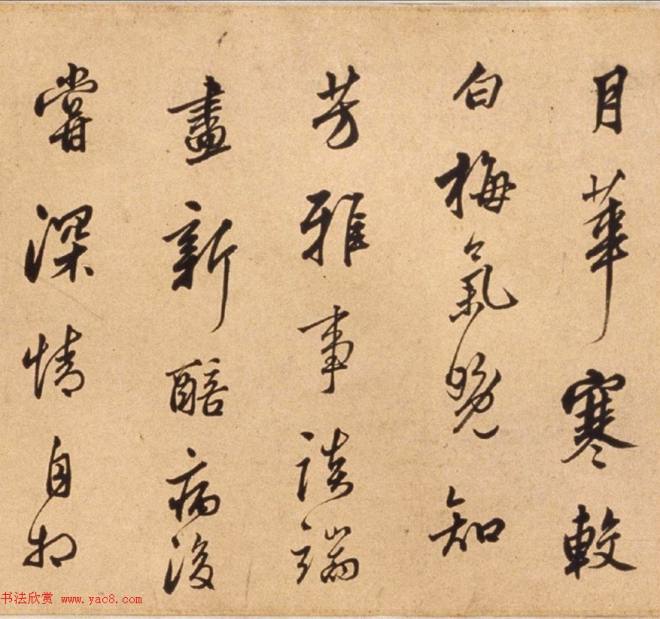 月華寒較
白梅氣晚知
芳雅事談端
盡新醅病後
嘗深情自相
书法欣赏 www.yac8.com